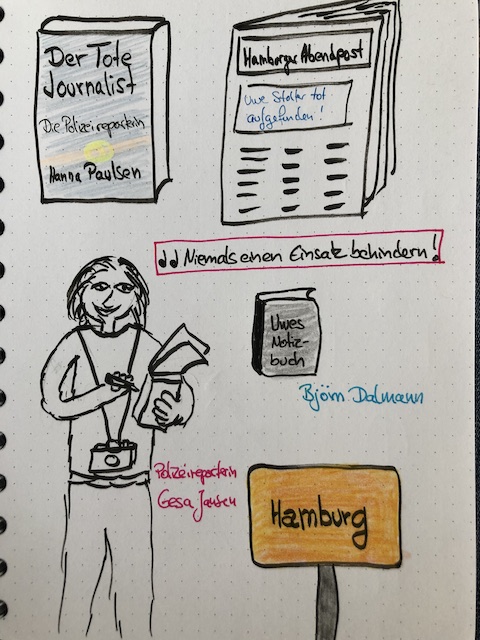 Der Tote
Journalist
Die Polizeireporterin
Hanna Paulsen
Hamburger Abendpost
Uwe Stolter tot
aufgefunden!
Niemals einen Einsatz behindern!
Uwes
Notiz-
buch
Björn Dalmann
Polizeireporterin
Gesa Jansen
Hamburg